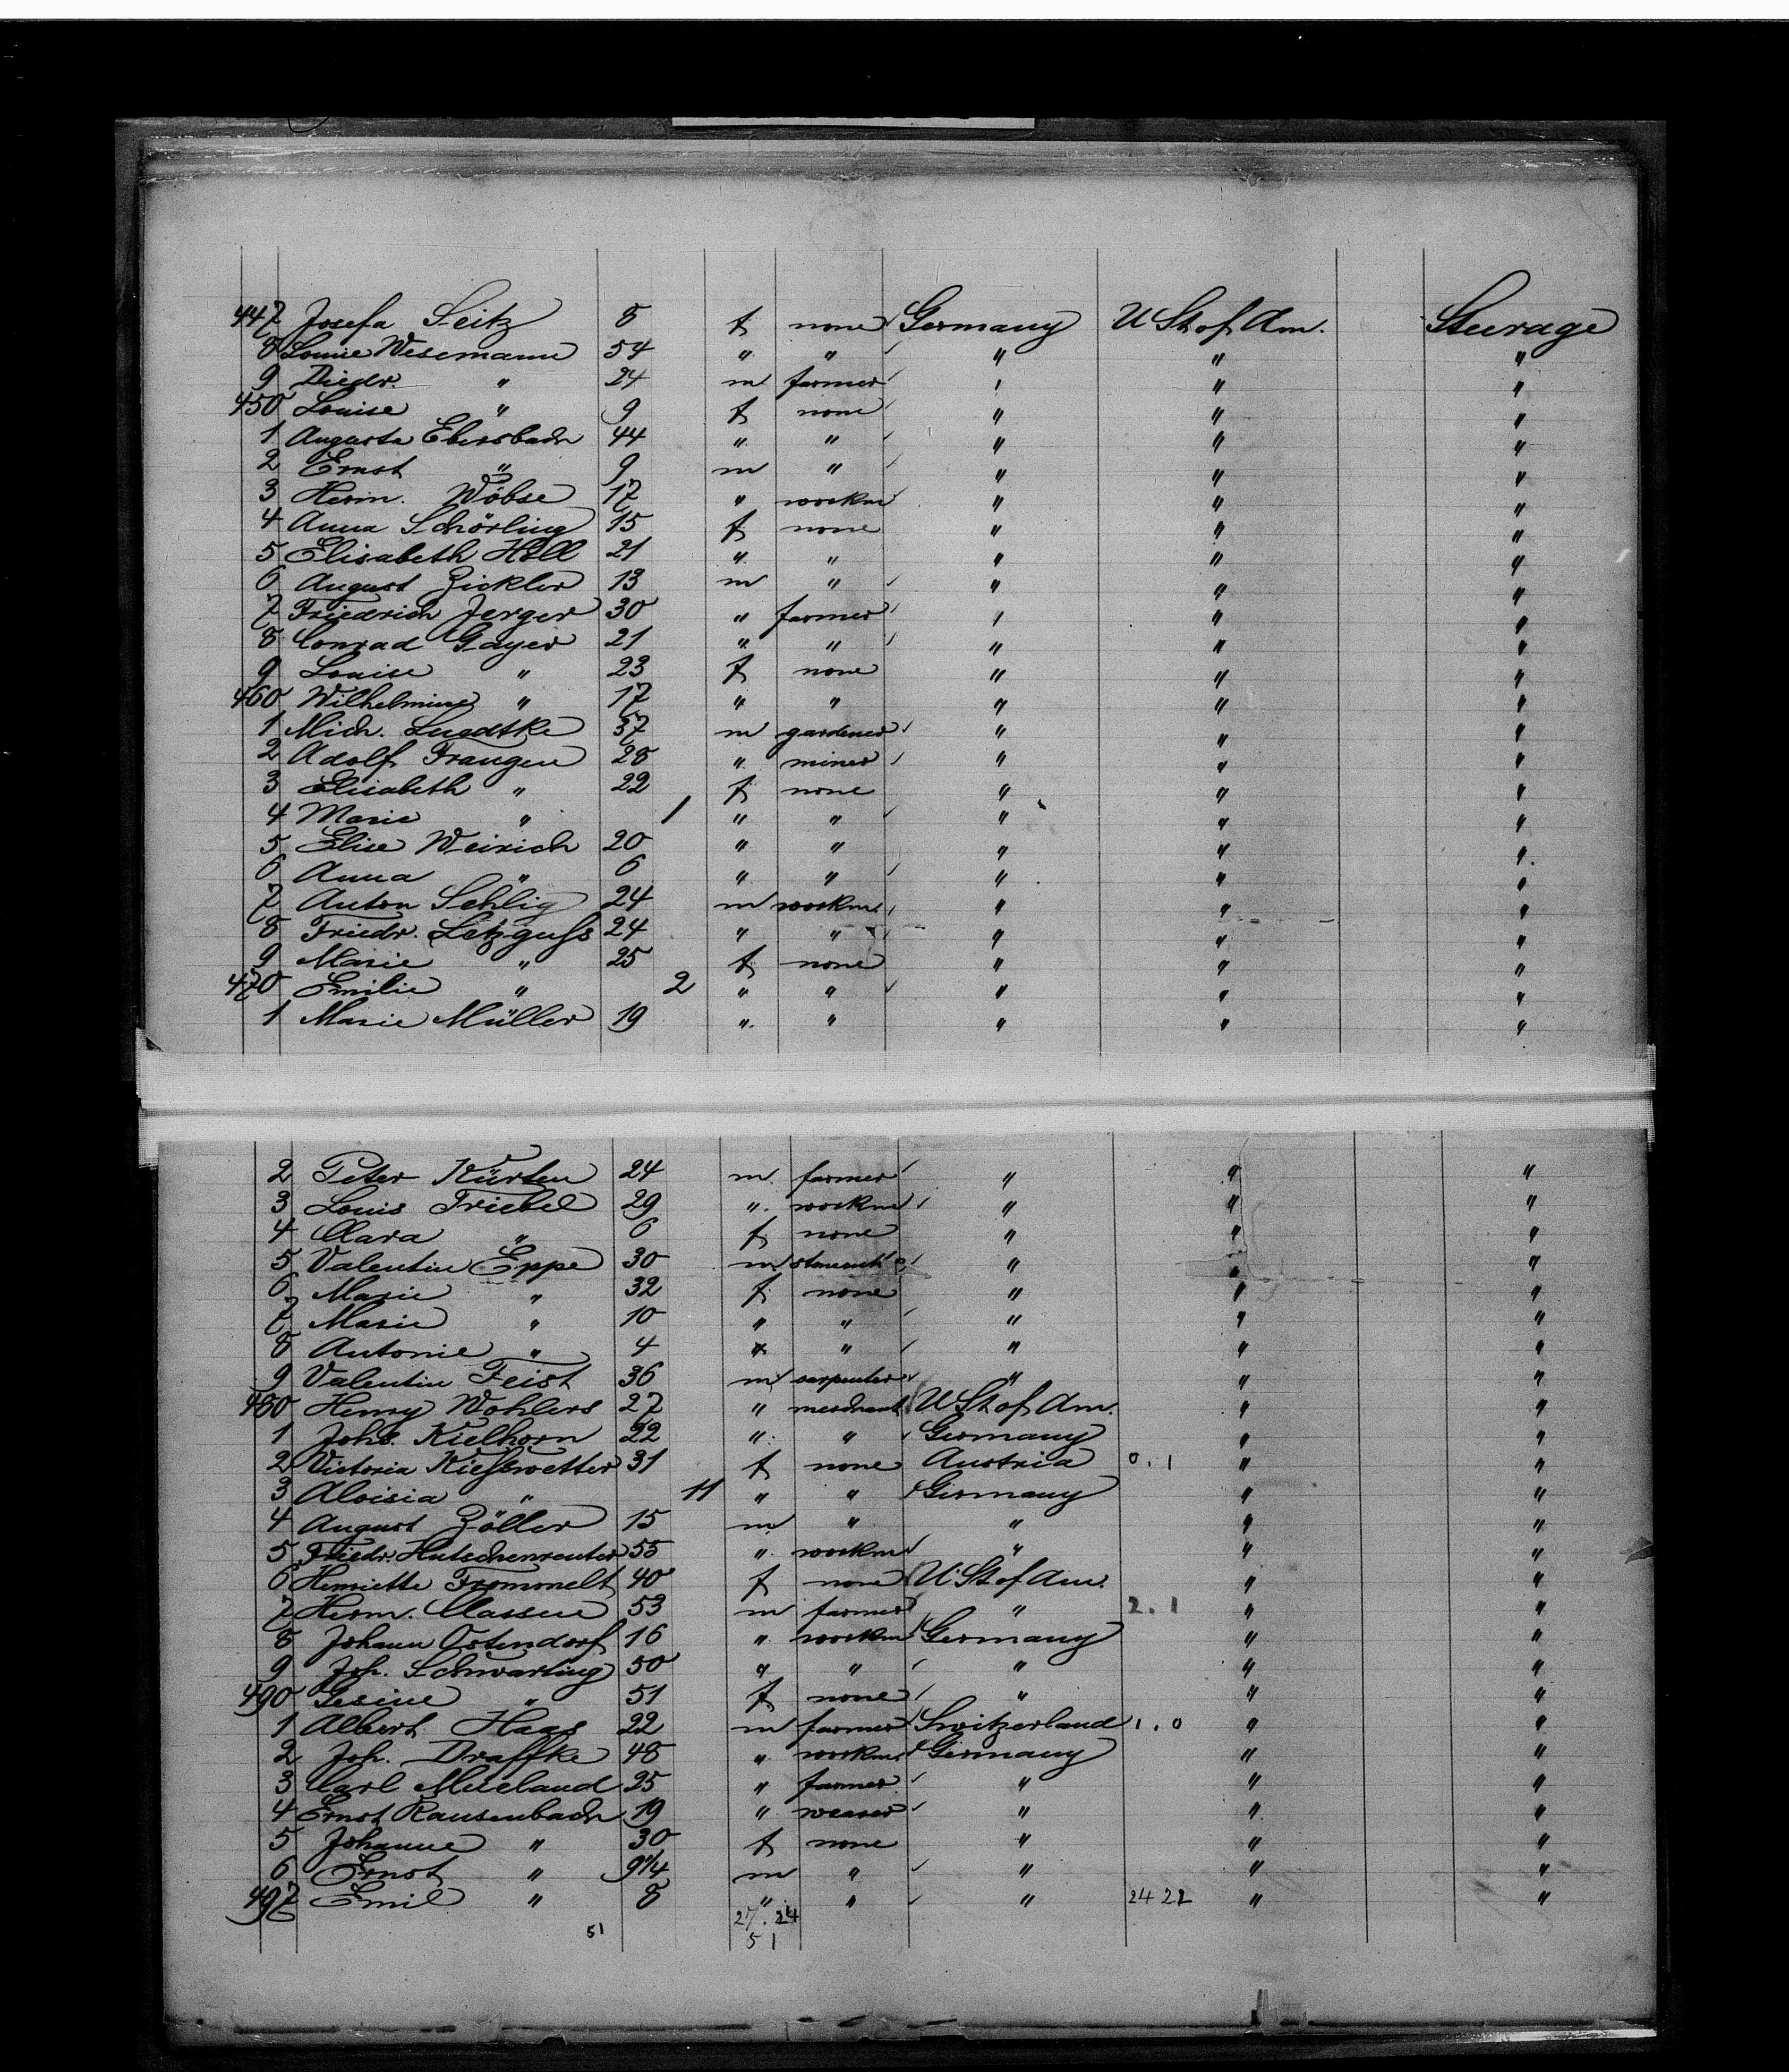 447 Josefa Seitz 8 f none Germany U St of Am. Steerage
8 Louise Wesemann 54 " " " " "
9 Diedr. " 24 m farmer " " "
450 Louise " 9 f none " " "
1 Augusta Ebersbach 44 " " " " "
2 Ernst " 9 m " " " "
3 Herm. Wöbse 17 " workm " " "
4 Anna Schörling 15 f none " " "
5 Elisabeth Höll 21 " " " " "
6 August Zickler 13 m " " " "
7 Friedrich Jerger 30 " farmer " " "
8 Conrad Gayer 21 " " " " "
9 Louise " 23 f none " " "
460 Wilhelmine " 17 " " " " "
1 Mich. Luedtke 57 m gardener " " "
2 Adolf Frangen 28 " miner " " "
3 Elisabeth " 22 f none " " "
4 Marie " 1 " " " " "
5 Elise Weirich 20 " " " " "
6 Anna " 6 " " " " "
7 Anton Sehlig 24 m workm. " " "
8 Friedr. Letzguss 24 " " " " "
9 Marie " 25 f none " " "
470 Emilie " 2 " " " " "
1 Marie Müller 19 " " " " "
2 Peter Kürten 24 m. farmer " " "
3 Louis Triebel 29 " workm " " "
4 Clara " 6 f none " " "
5 Valentin Eppe 30 m " " "
6 Marie " 32 f none " " "
7 Marie " 10 " " " " "
8 Antonie " 4 " " " " "
9 Valentin Feist 36 m carpenter " " "
480 Henry Wohlers 27 " merchant U St of Am. " "
1 Johs. Kielhorn 22 " " Germany " "
2 Victoria Kiesswetter 31 f none Austria 0.1 " "
3 Aloisia " 11 " " Germany " "
4 August Zöller 15 m " " " "
5 Friedr. Hutschenreuter 55 " workm " " "
6 Henriette Frommelt 40 f none U. St of Am. " "
7 Herm. Classen 53 m farmer " 2.1 " "
8 Johann Ostendorf 16 " workm Germany " "
9 Joh. Schwarting 50 " " " " "
490 Gesine " 51 f none " " "
1 Albert Haas 22 m farmer Switzerland 1.0 " "
2 Joh. Draffke 48 " workm. Germany " "
3 Carl Mieland 25 " farmer " " "
4 Ernst Rausenbach 19 " weaver " " "
5 Johanne " 30 f none " " "
6 Ernst " 9 1/4 m " " " "
497 Emil " 8 " " " 24 22 " "
27. 24
51 51